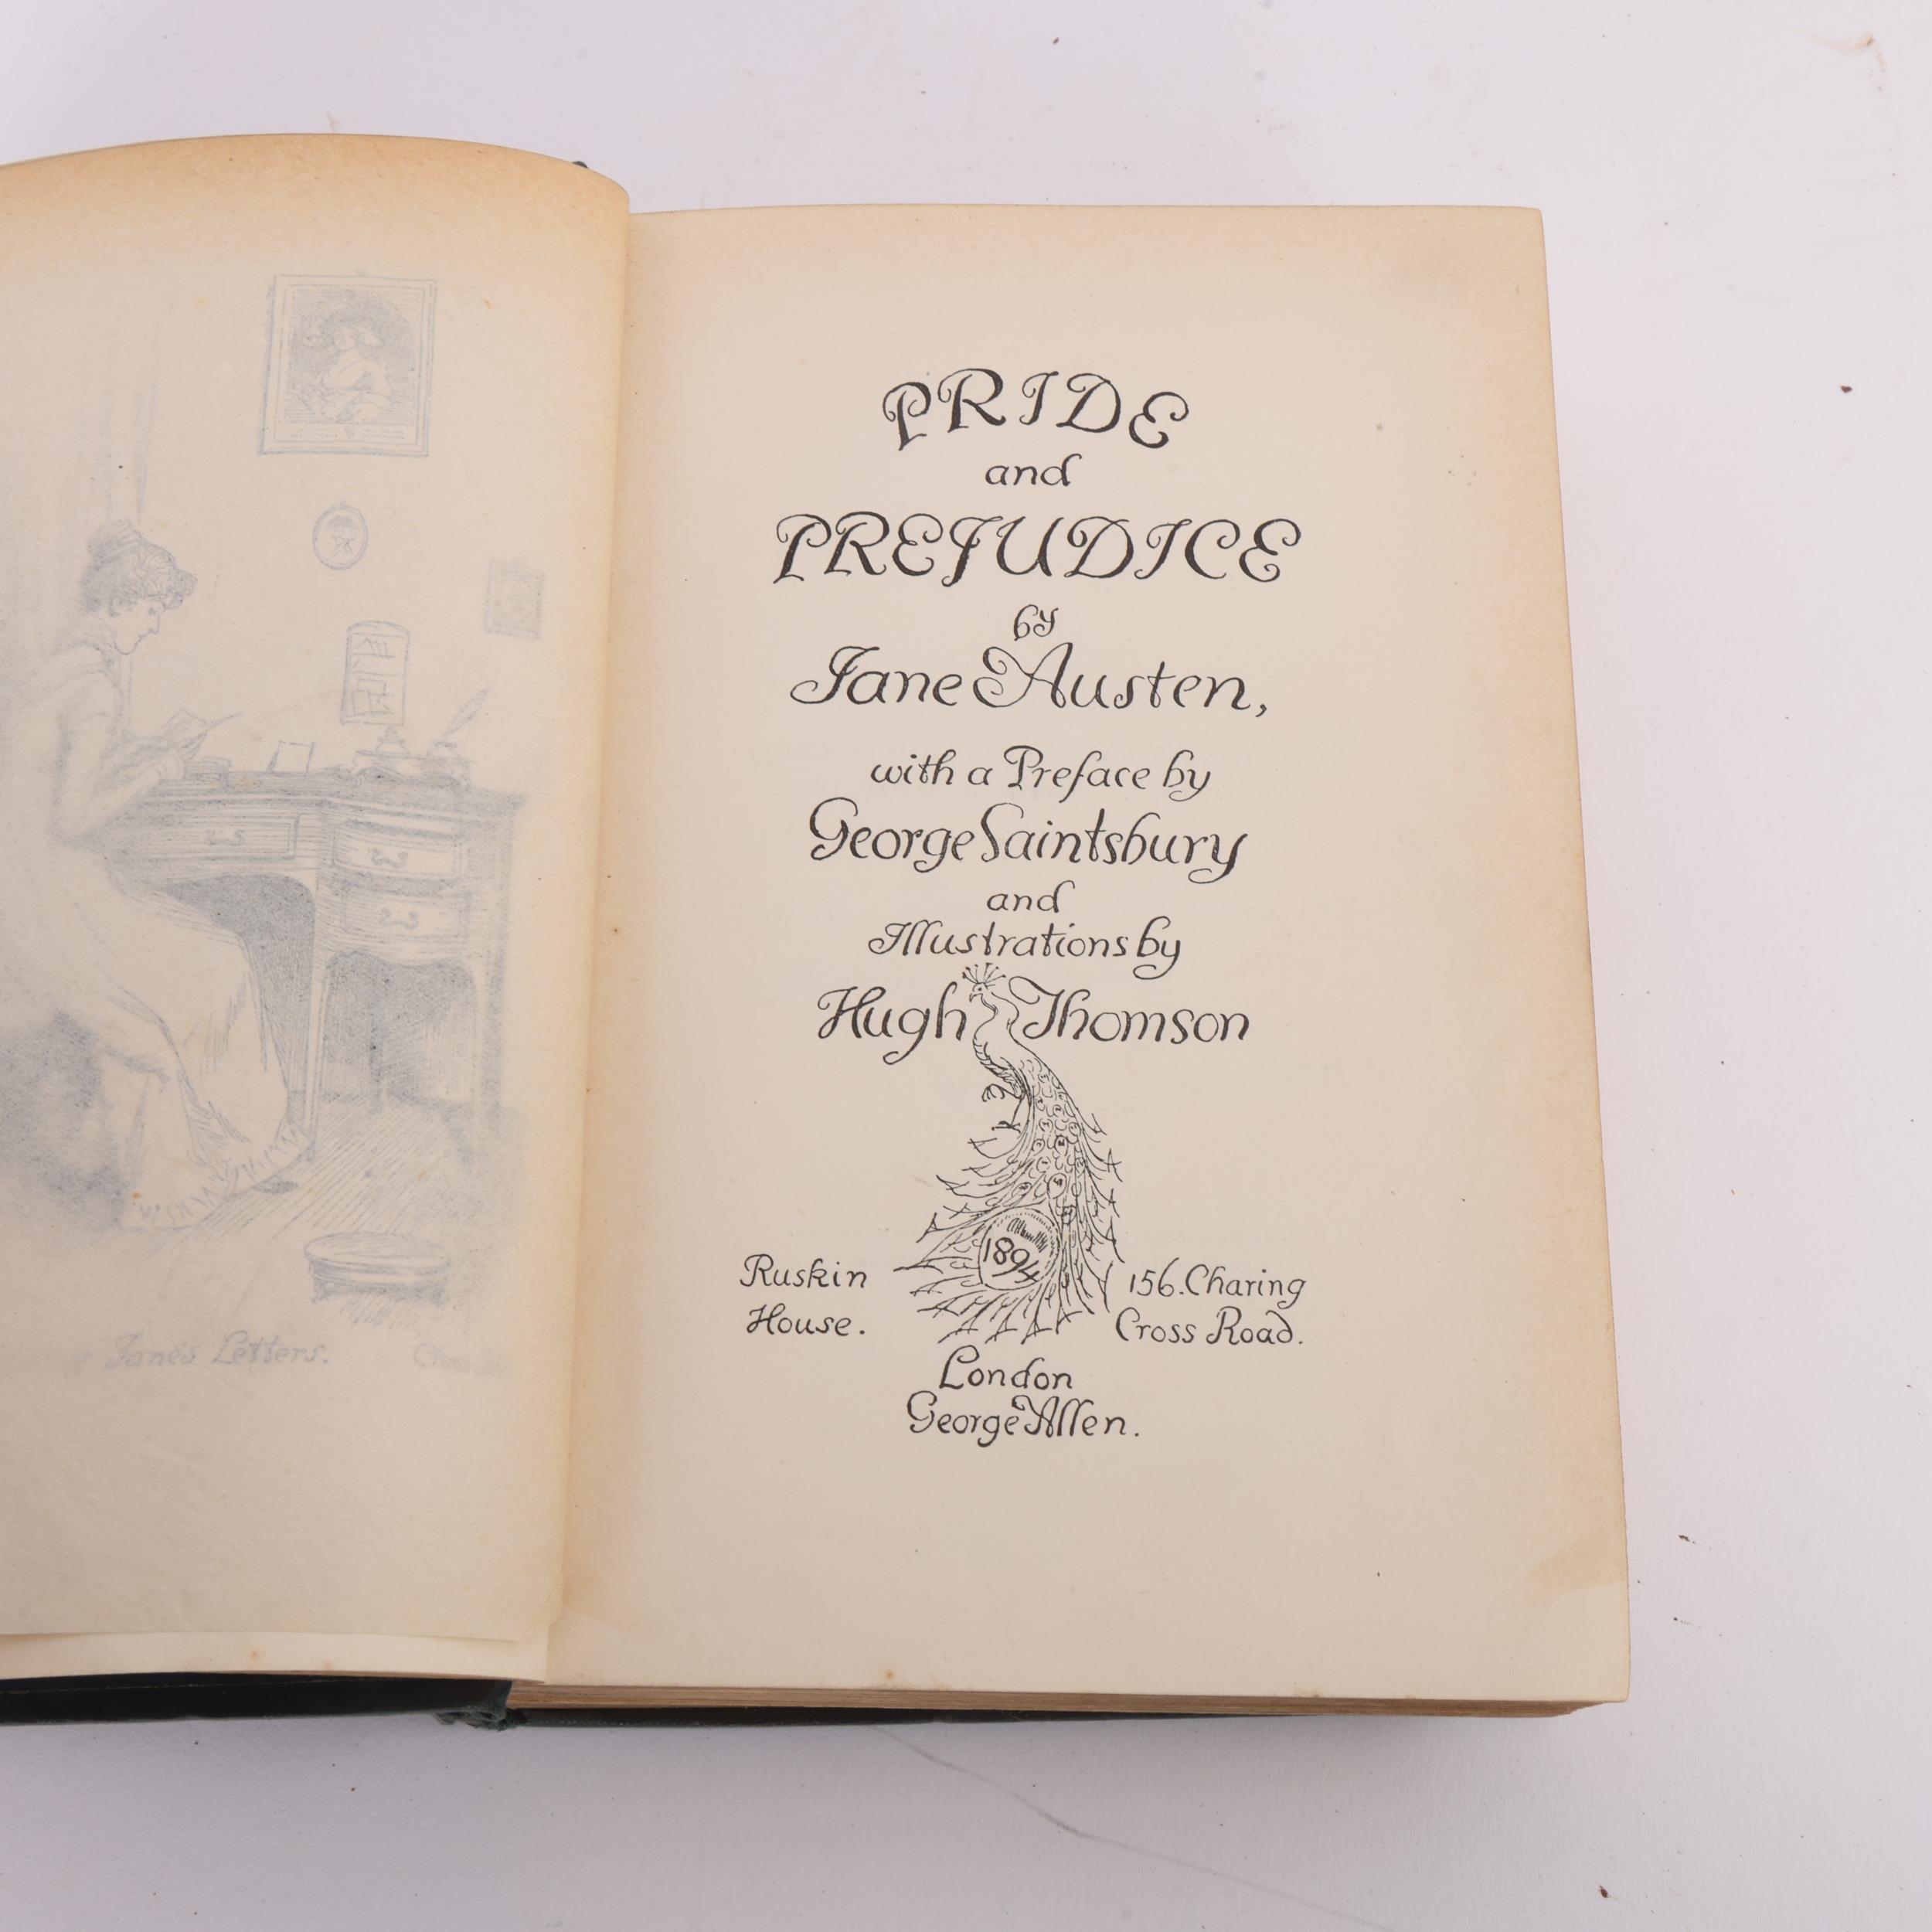 Jane's Letters.
PRIDE
and
PREJUDICE
by
Jane Austen,
with a Preface by
George Saintsbury
and
Illustrations by
Hugh Thomson
1894
Ruskin
House.
156. Charing
Cross Road.
London
George Allen.